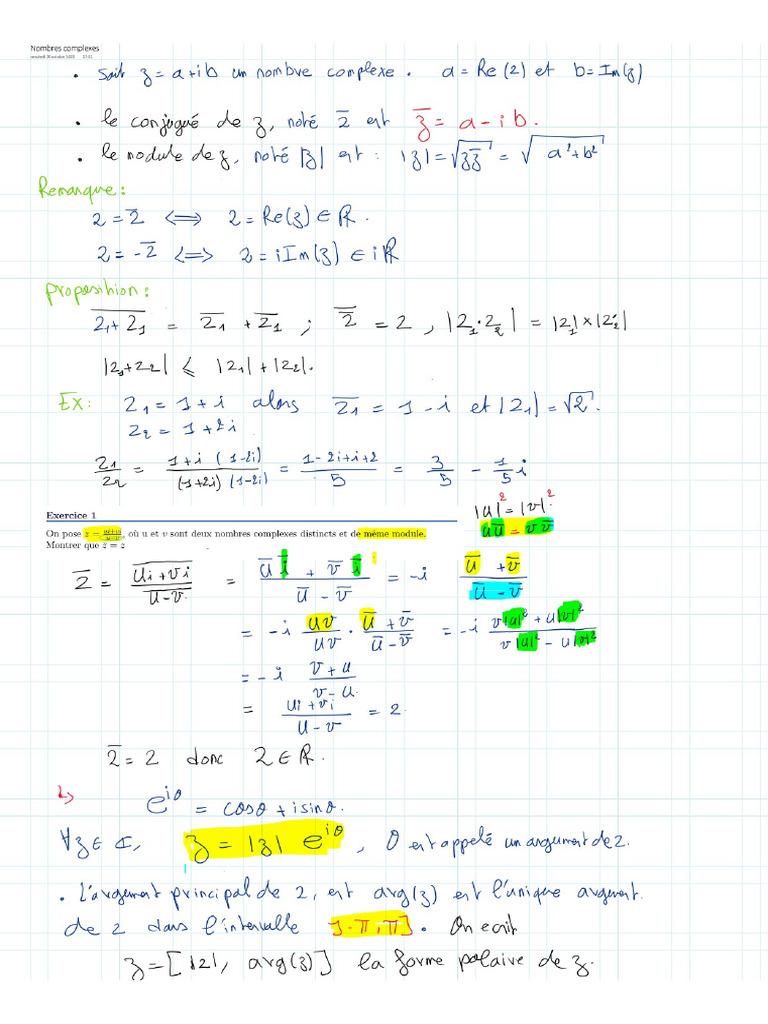 Nombres complexes
• soit z = a+ib un nombre complexe. a = Re(z) et b = Im(z)
• le conjugué de z, noté z̅ est z̅ = a - ib.
• le module de z, noté |z| est : |z| = √(z z̅) = √(a²+b²)
Remarque :
z = z̅ <=> z = Re(z) ∈ ℝ.
z = -z̅ <=> z = i Im(z) ∈ iℝ
Proposition :
\overline{z₁+z₁} = z̅₁ + z̅₁ ; \overline{z̅} = z , |z₁·z₂| = |z₁| × |z₂|
|z₁+z₂| ≤ |z₁| + |z₂|.
Ex: z₁ = 1+i alors z̅₁ = 1-i et |z₁| = √2.
z₂ = 1+2i
z₁/z₂ = 1+i (1-2i) / (1+2i) (1-2i) = (1-2i+i+2)/5 = 3/5 - 1/5 i
|u|² = |v|²
u u̅ = v v̅
Exercice 1
On pose z = (ui+vi)/(u-v), où u et v sont deux nombres complexes distincts et de même module.
Montrer que z̅ = z
z̅ = \overline{(ui+vi)/(u-v)} = (u̅ i̅ + v̅ i̅)/(u̅ - v̅) = -i (u̅ + v̅)/(u̅ - v̅)
= -i uv/uv · (u̅ + v̅)/(u̅ - v̅) = -i (v|u|² + u|v|²)/(v|u|² - u|v|²)
= -i (v+u)/(v-u)
= (ui+vi)/(u-v) = z.
z̅ = z donc z ∈ ℝ.
↳ e^{iθ} = cosθ + i sinθ.
∀z ∈ ℂ, z = |z| e^{iθ}, θ est appelé un argument de z.
• L'argument principal de z, est arg(z) est l'unique argument
de z dans l'intervalle ]-π,π]. On ecrit
z = [|z|, arg(z)] la forme polaire de z.